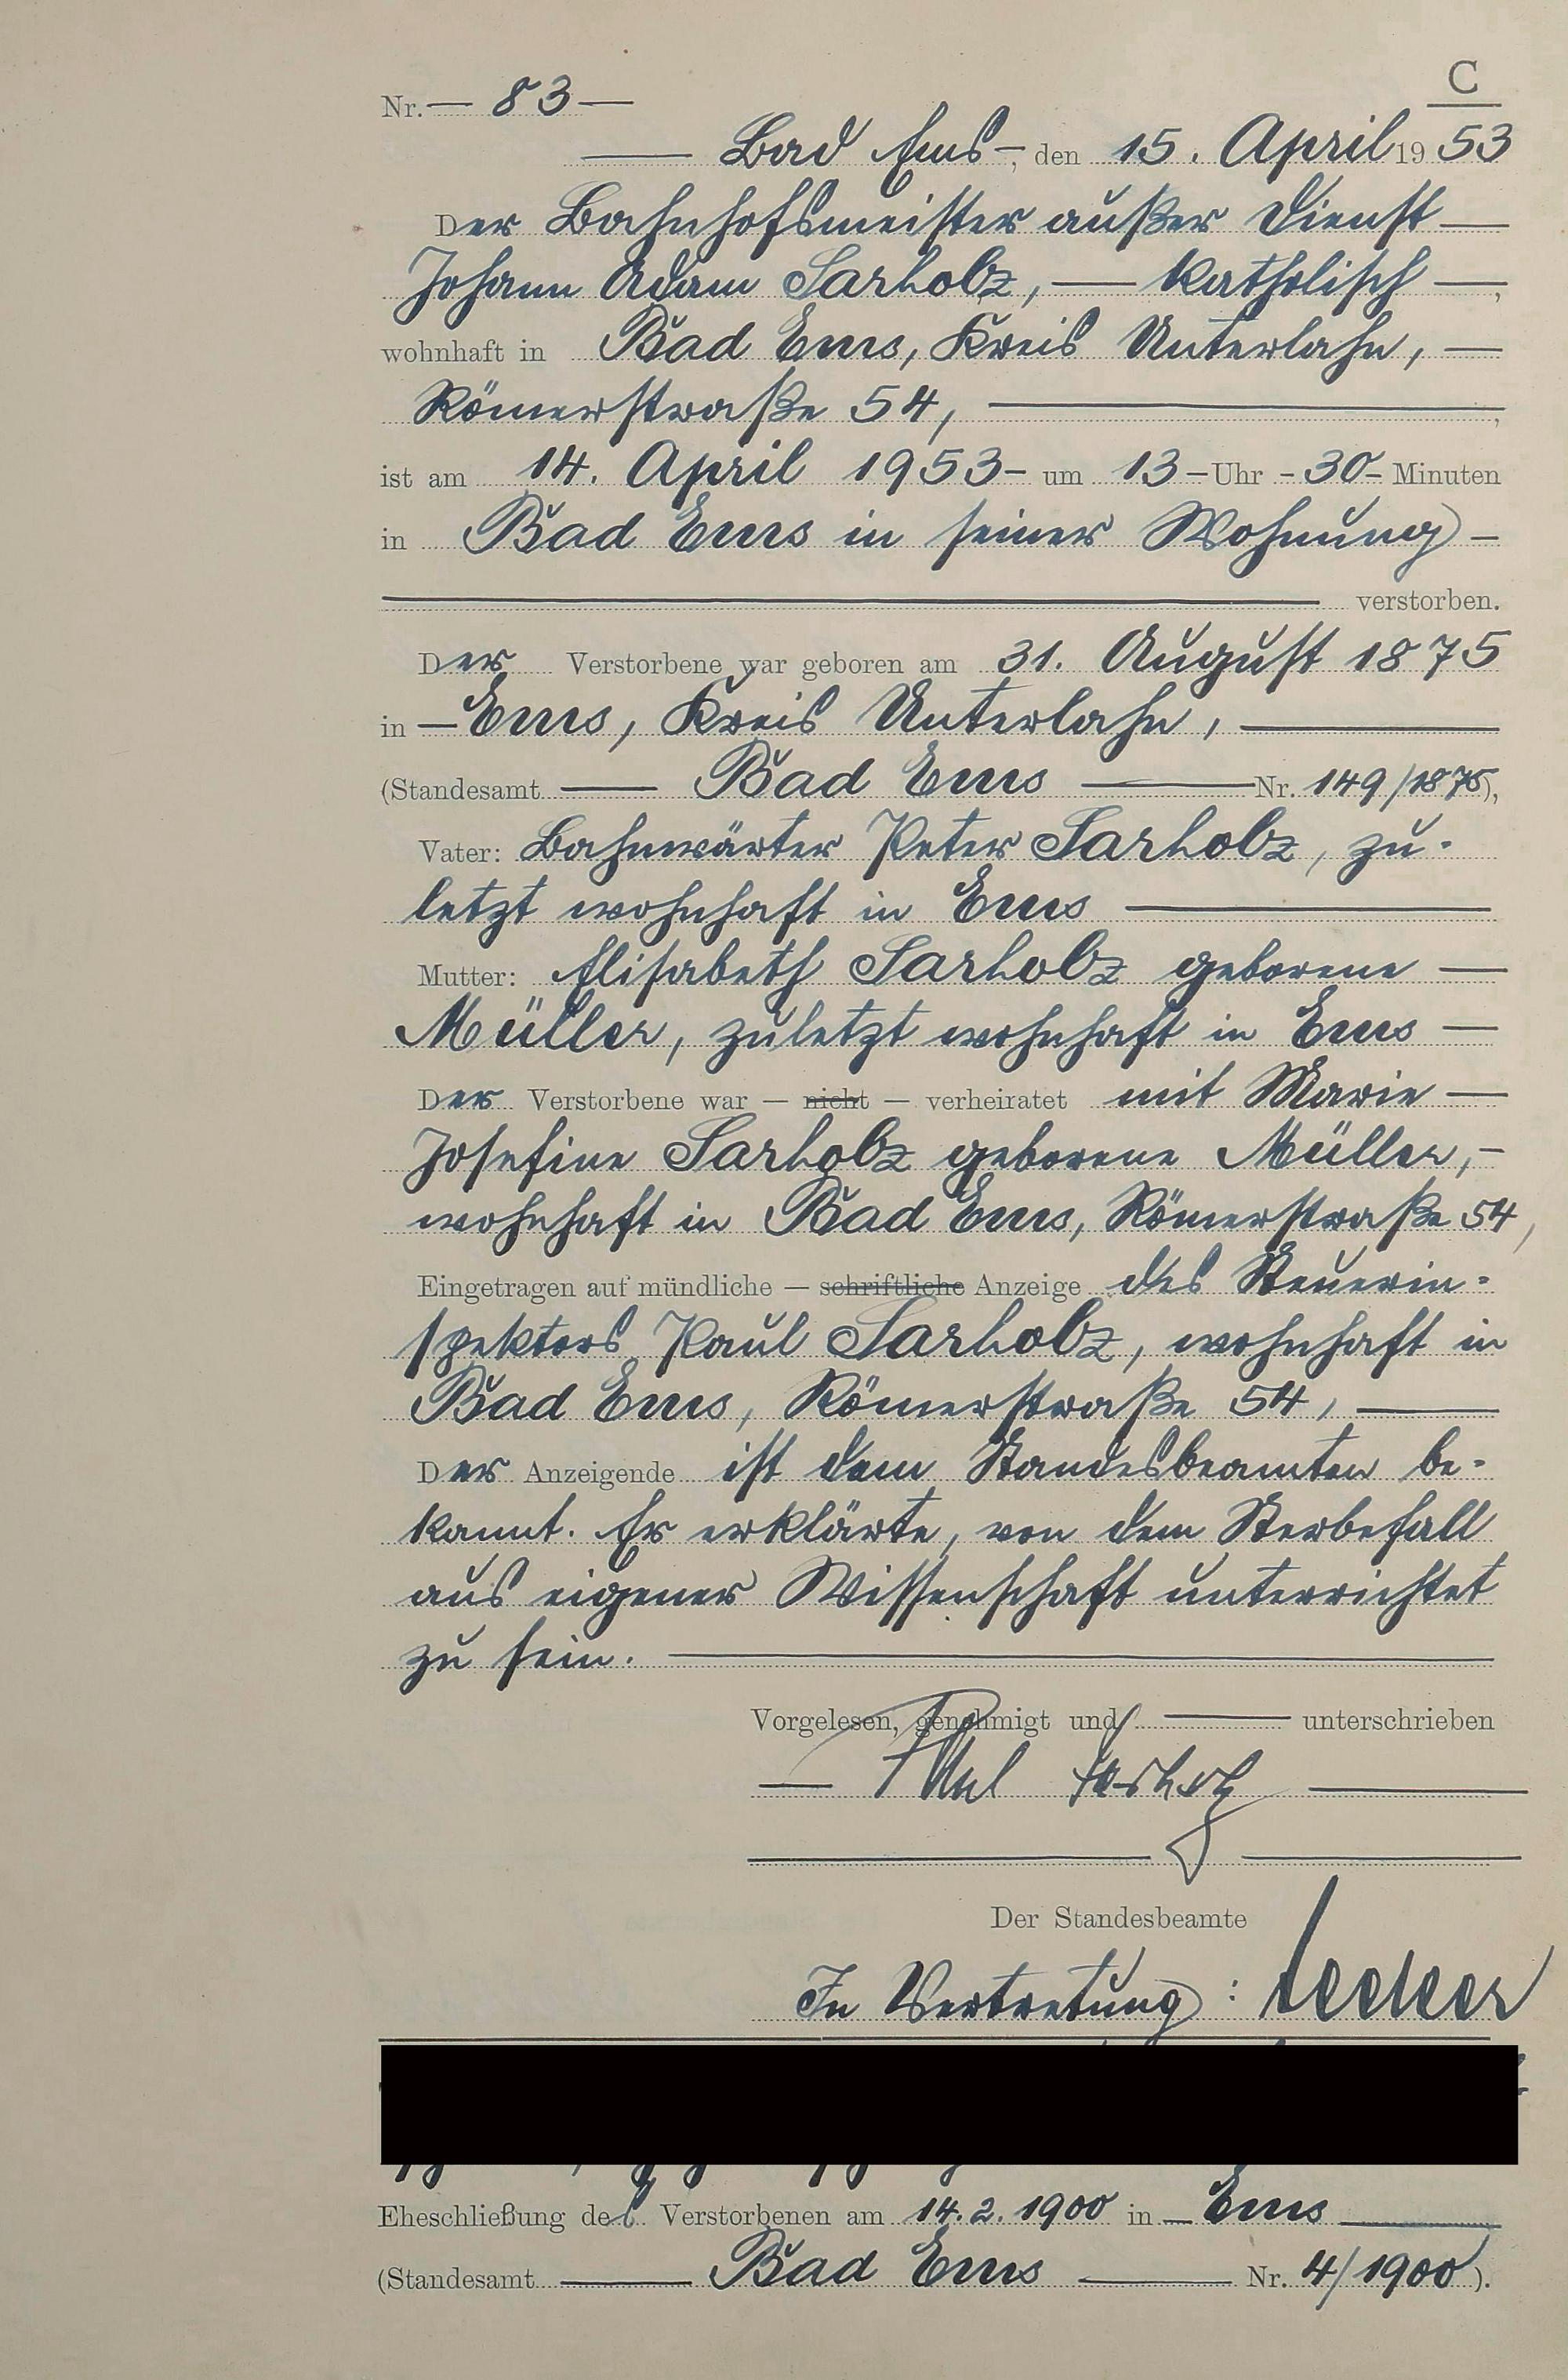 C
Nr. — 83 —
— Bad Ems —, den 15. April 1953
Der Bahnhofsmeister außer Dienst —
Johann Adam Sarholz, — katholisch —,
wohnhaft in Bad Ems, Kreis Unterlahn, —
Römerstraße 54, —,
ist am 14. April 1953 - um 13 - Uhr - 30 - Minuten
in Bad Ems in seiner Wohnung -
verstorben.
Der Verstorbene war geboren am 31. August 1875
in — Ems, Kreis Unterlahn, —
(Standesamt — Bad Ems — Nr. 149/1875),
Vater: Bahnwärter Peter Sarholz, zu-
letzt wohnhaft in Ems —
Mutter: Elisabeth Sarholz geborene —
Müller, zuletzt wohnhaft in Ems —
Der Verstorbene war — nicht — verheiratet mit Marie —
Josefine Sarholz geborene Müller, -
wohnhaft in Bad Ems, Römerstraße 54,
Eingetragen auf mündliche — schriftliche Anzeige des Steuerin-
spektors Paul Sarholz, wohnhaft in
Bad Ems, Römerstraße 54, —
Der Anzeigende ist dem Standesbeamten be-
kannt. Er erklärte, von dem Sterbefall
aus eigener Wissenschaft unterrichtet
zu sein. —
Vorgelesen, genehmigt und — unterschrieben
— Paul Sarholz —
Der Standesbeamte
In Vertretung:
Eheschließung des Verstorbenen am 14.2.1900 in — Ems —
(Standesamt — Bad Ems — Nr. 4/1900).